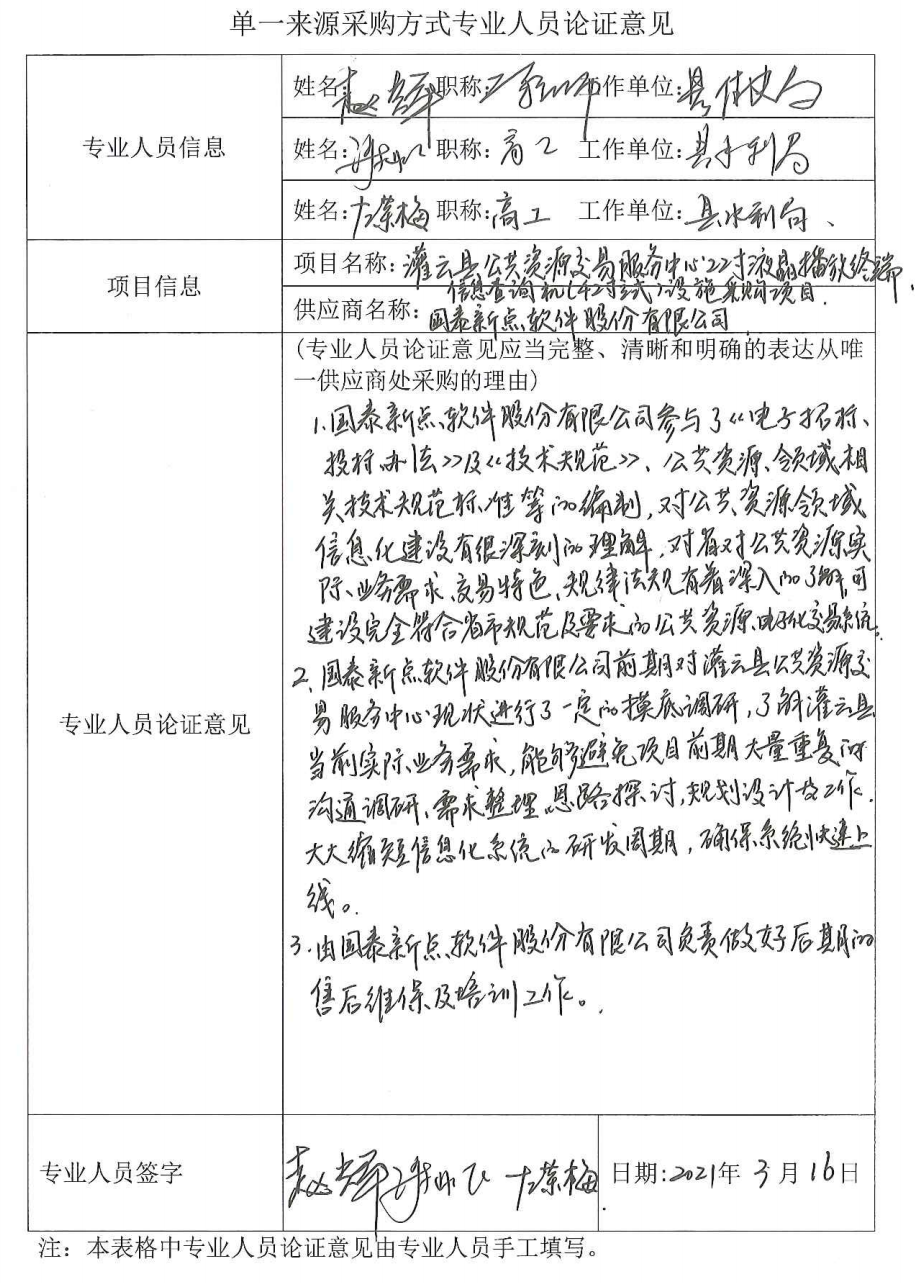 单一来源采购方式专业人员论证意见
专业人员信息
姓名: 职称:工程师 工作单位:县住建局
姓名: 职称:高工 工作单位:县水利局
姓名: 荣梅 职称:高工 工作单位:县水利局、
项目信息
项目名称:灌云县公共资源交易服务中心22寸液晶播放终端、
信息查询机(42寸立式)设施采购项目.
供应商名称:国泰新点软件股份有限公司
专业人员论证意见
(专业人员论证意见应当完整、清晰和明确的表达从唯
一供应商处采购的理由)
1.国泰新点软件股份有限公司参与了《电子招标、
投标办法》及《技术规范》、公共资源领域相
关技术规范标准等的编制,对公共资源领域
信息化建设有很深刻的理解,对省对公共资源实
际业务需求、交易特色、规律法规有着深入的了解,可
建设完全符合省市规范及要求的公共资源电子化交易系统。
2.国泰新点软件股份有限公司前期对灌云县公共资源交
易服务中心现状进行了一定的摸底调研,了解灌云县
当前实际业务需求,能够避免项目前期大量重复的
沟通调研、需求整理、思路探讨,规划设计及工作.
大大缩短信息化系统的研发周期,确保系统快速上
线。
3.由国泰新点软件股份有限公司负责做好后期的
售后维保及培训工作。
专业人员签字
荣梅
日期:2021年 3 月 16 日
注：本表格中专业人员论证意见由专业人员手工填写。